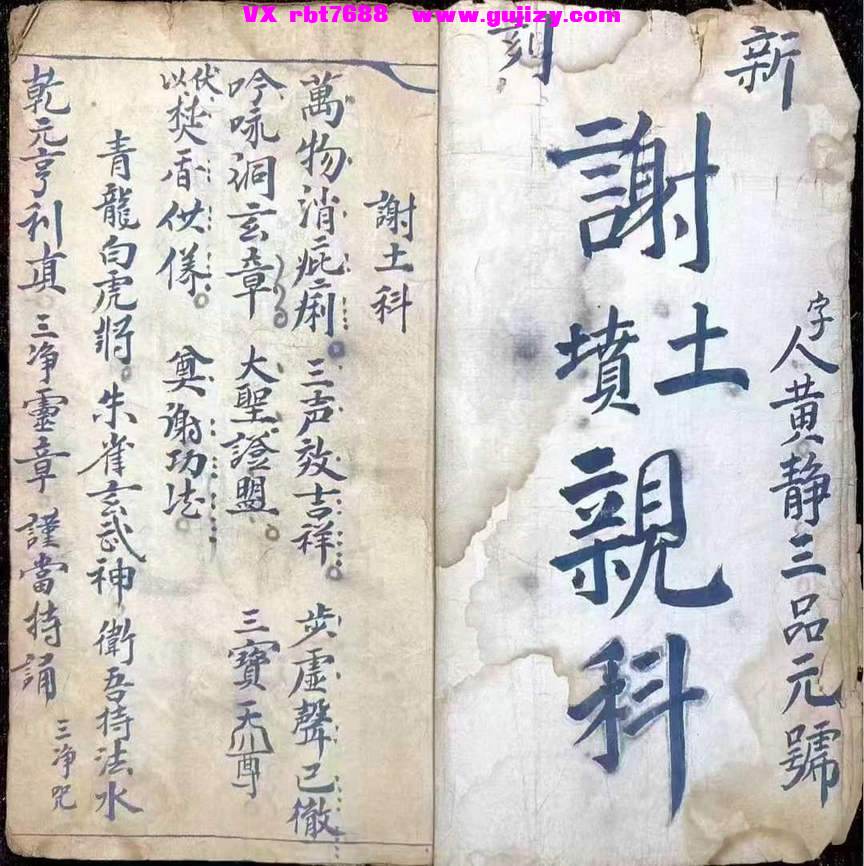 VX rbt7688 www.gujizy.com
新刻
字人黄静三品元號
謝土
墳
親科
謝土科
萬物消疵痢。三声效吉祥。步虛聲已徹
吟咏洞玄章 大聖證盟。三寶天尊
伏以焚香供儀。奠謝功法
青龍白虎將。朱雀玄武神 衛吾持法水
乾元亨利貞。三净靈章 謹當持誦 三净咒